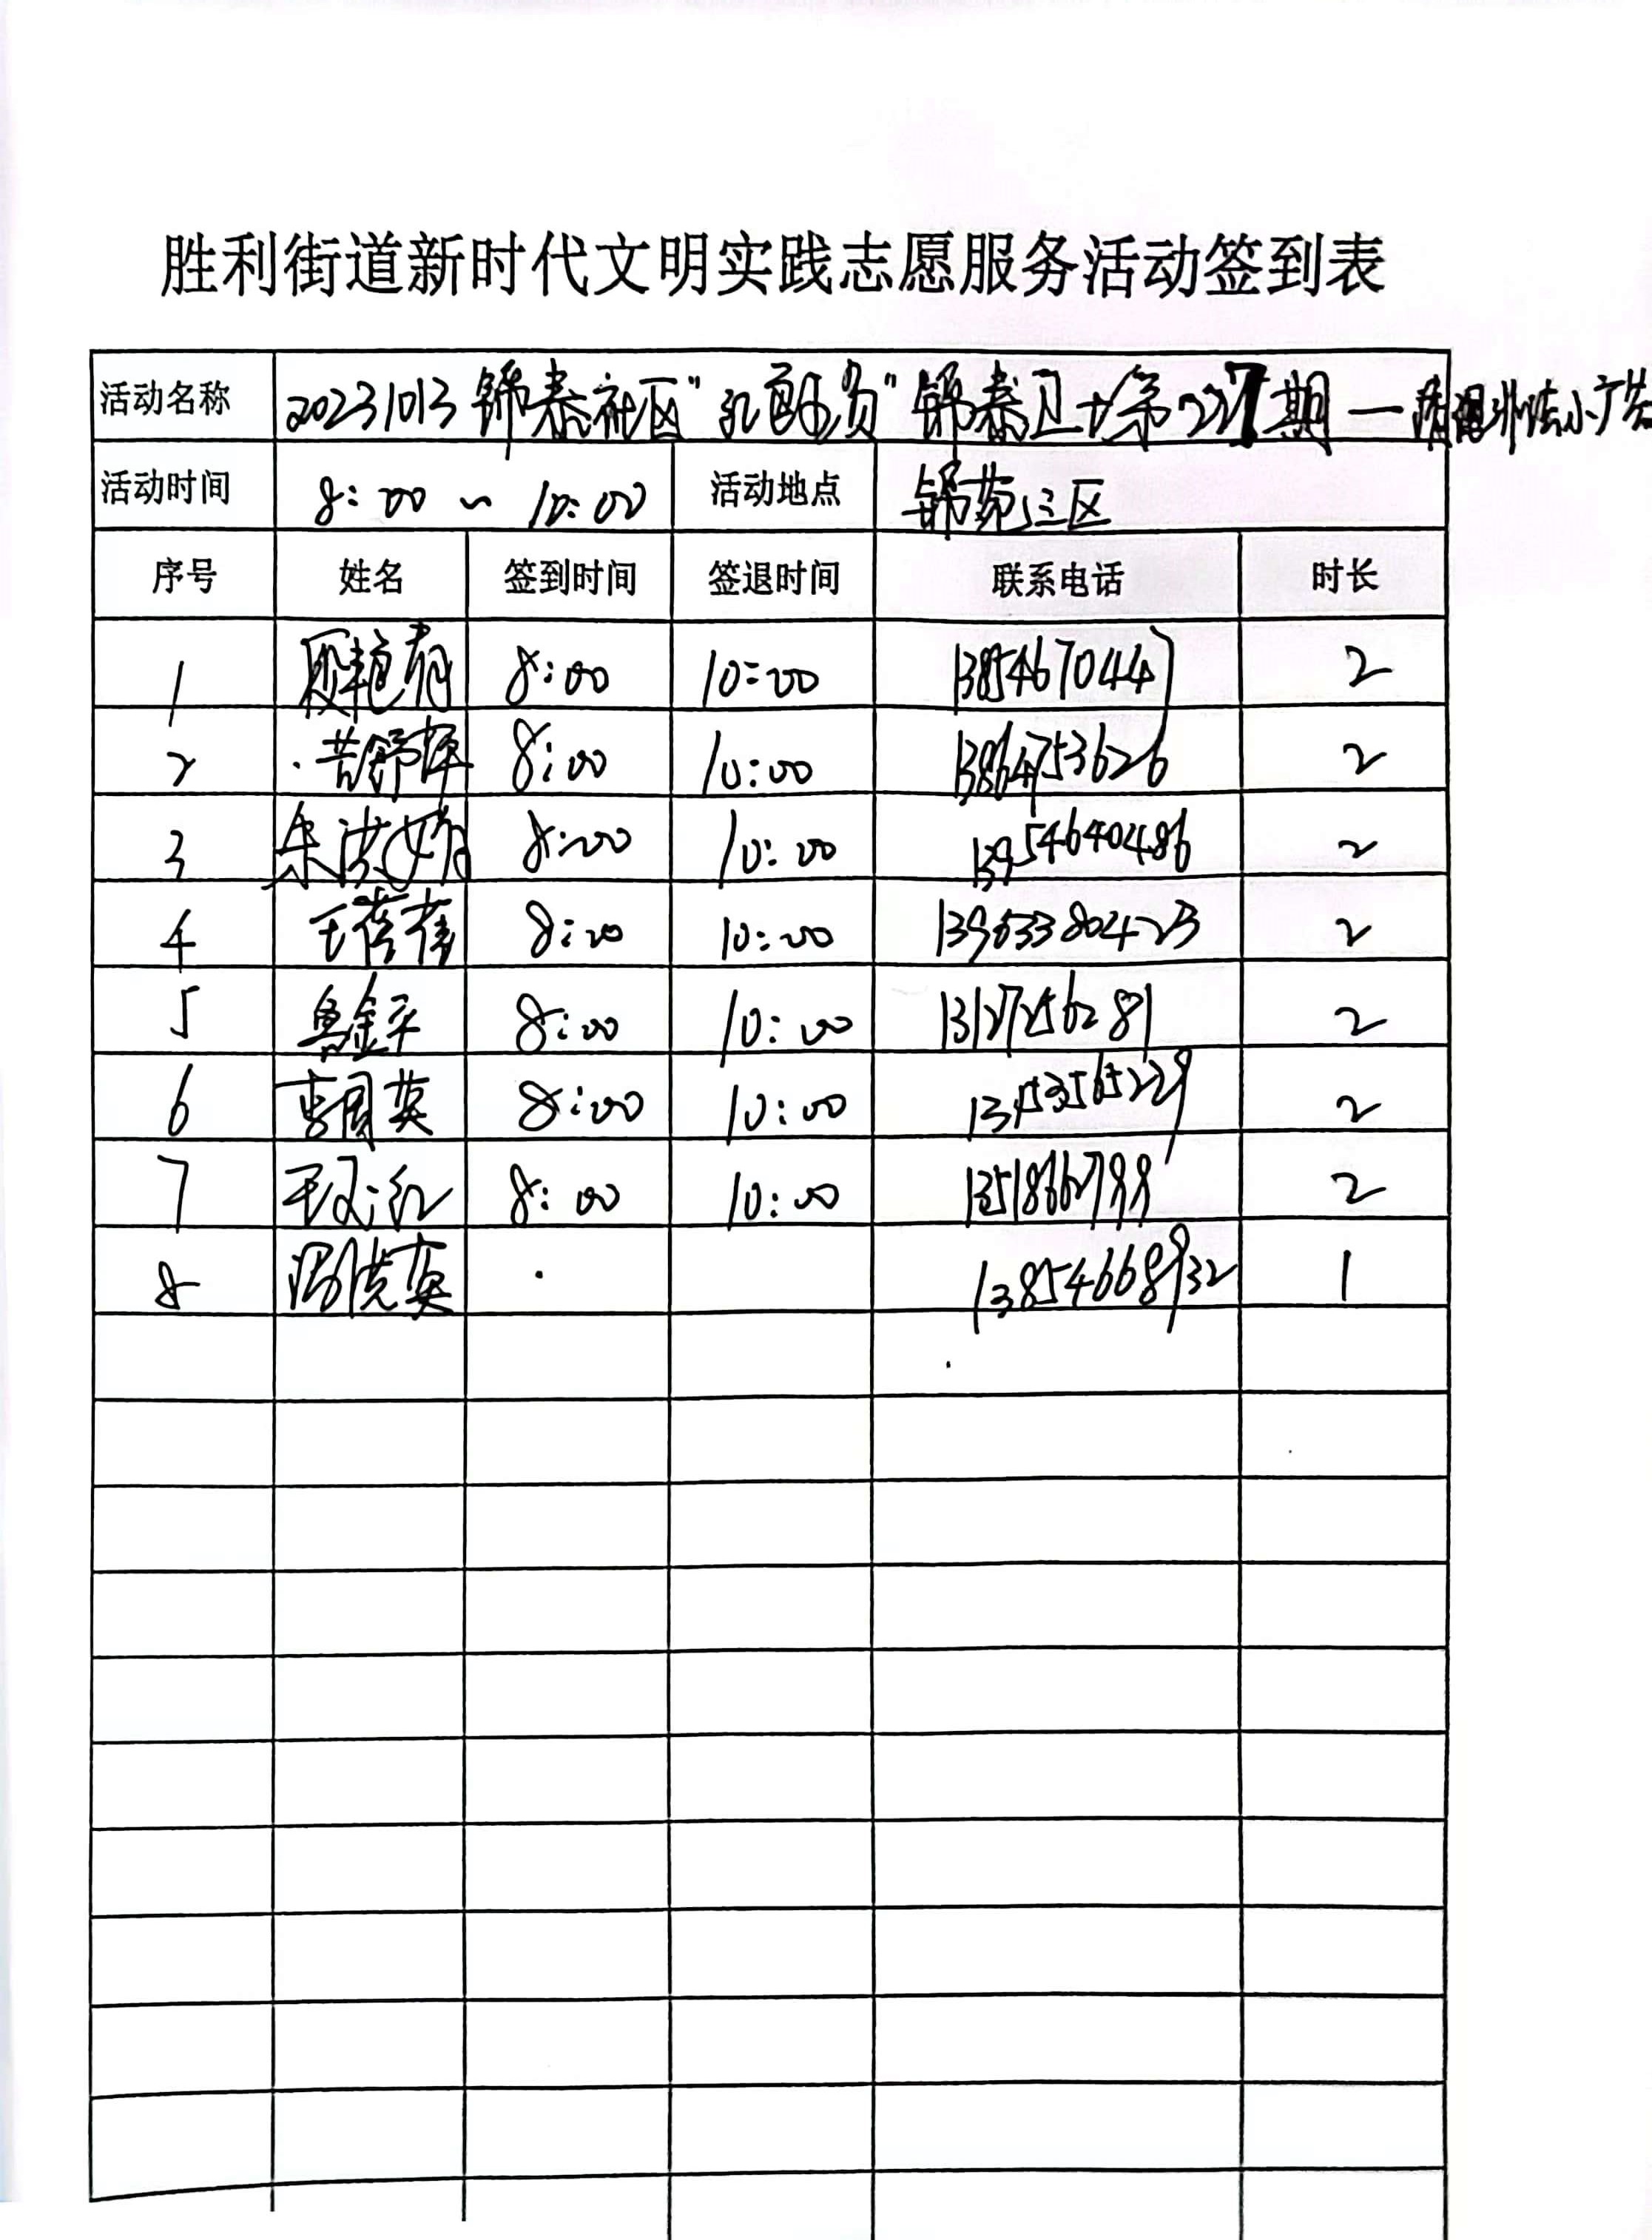 胜利街道新时代文明实践志愿服务活动签到表
活动名称 20231013 锦泰社区"红色 "锦泰卫士第227期一清理非法小广告
活动时间 8:00 ~ 10:00 活动地点 锦苑三区
序号 姓名 签到时间 签退时间 联系电话 时长
1 8:00 10:00 13854670447 2
2 苦舒萍 8:00 10:00 13864753626 2
3 朱洪娟 8:00 10:00 13954640486 2
4 王蓓蓓 8:00 10:00 2
5 鲁金平 8:00 10:00 2
6 李国英 8:00 10:00 2
7 8:00 10:00 2
8 13854668932 1